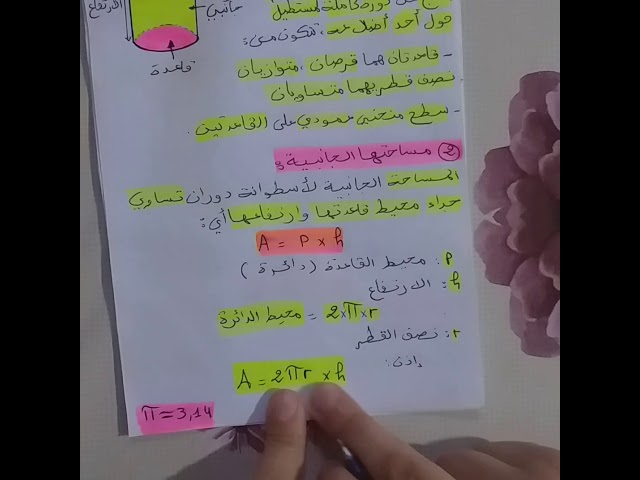 الارتفاع
جانبي
قاعدة
دورة كاملة مستطيل
حول أحد أضلاعه، تتكون من:
- قاعدتان هما قرصان، متوازيان
نصف قطريهما متساويان
- سطح منحني عمودي على القاعدتين.
② مساحتها الجانبية:
المساحة الجانبية لأسطوانة دوران تساوي
جداء محيط قاعدتها وارتفاعها أي:
A = P × h
P: محيط القاعدة (دائرة)
h: الارتفاع
محيط الدائرة = 2×π×r
r: نصف القطر
إذن:
A = 2πr × h
π ≈ 3,14